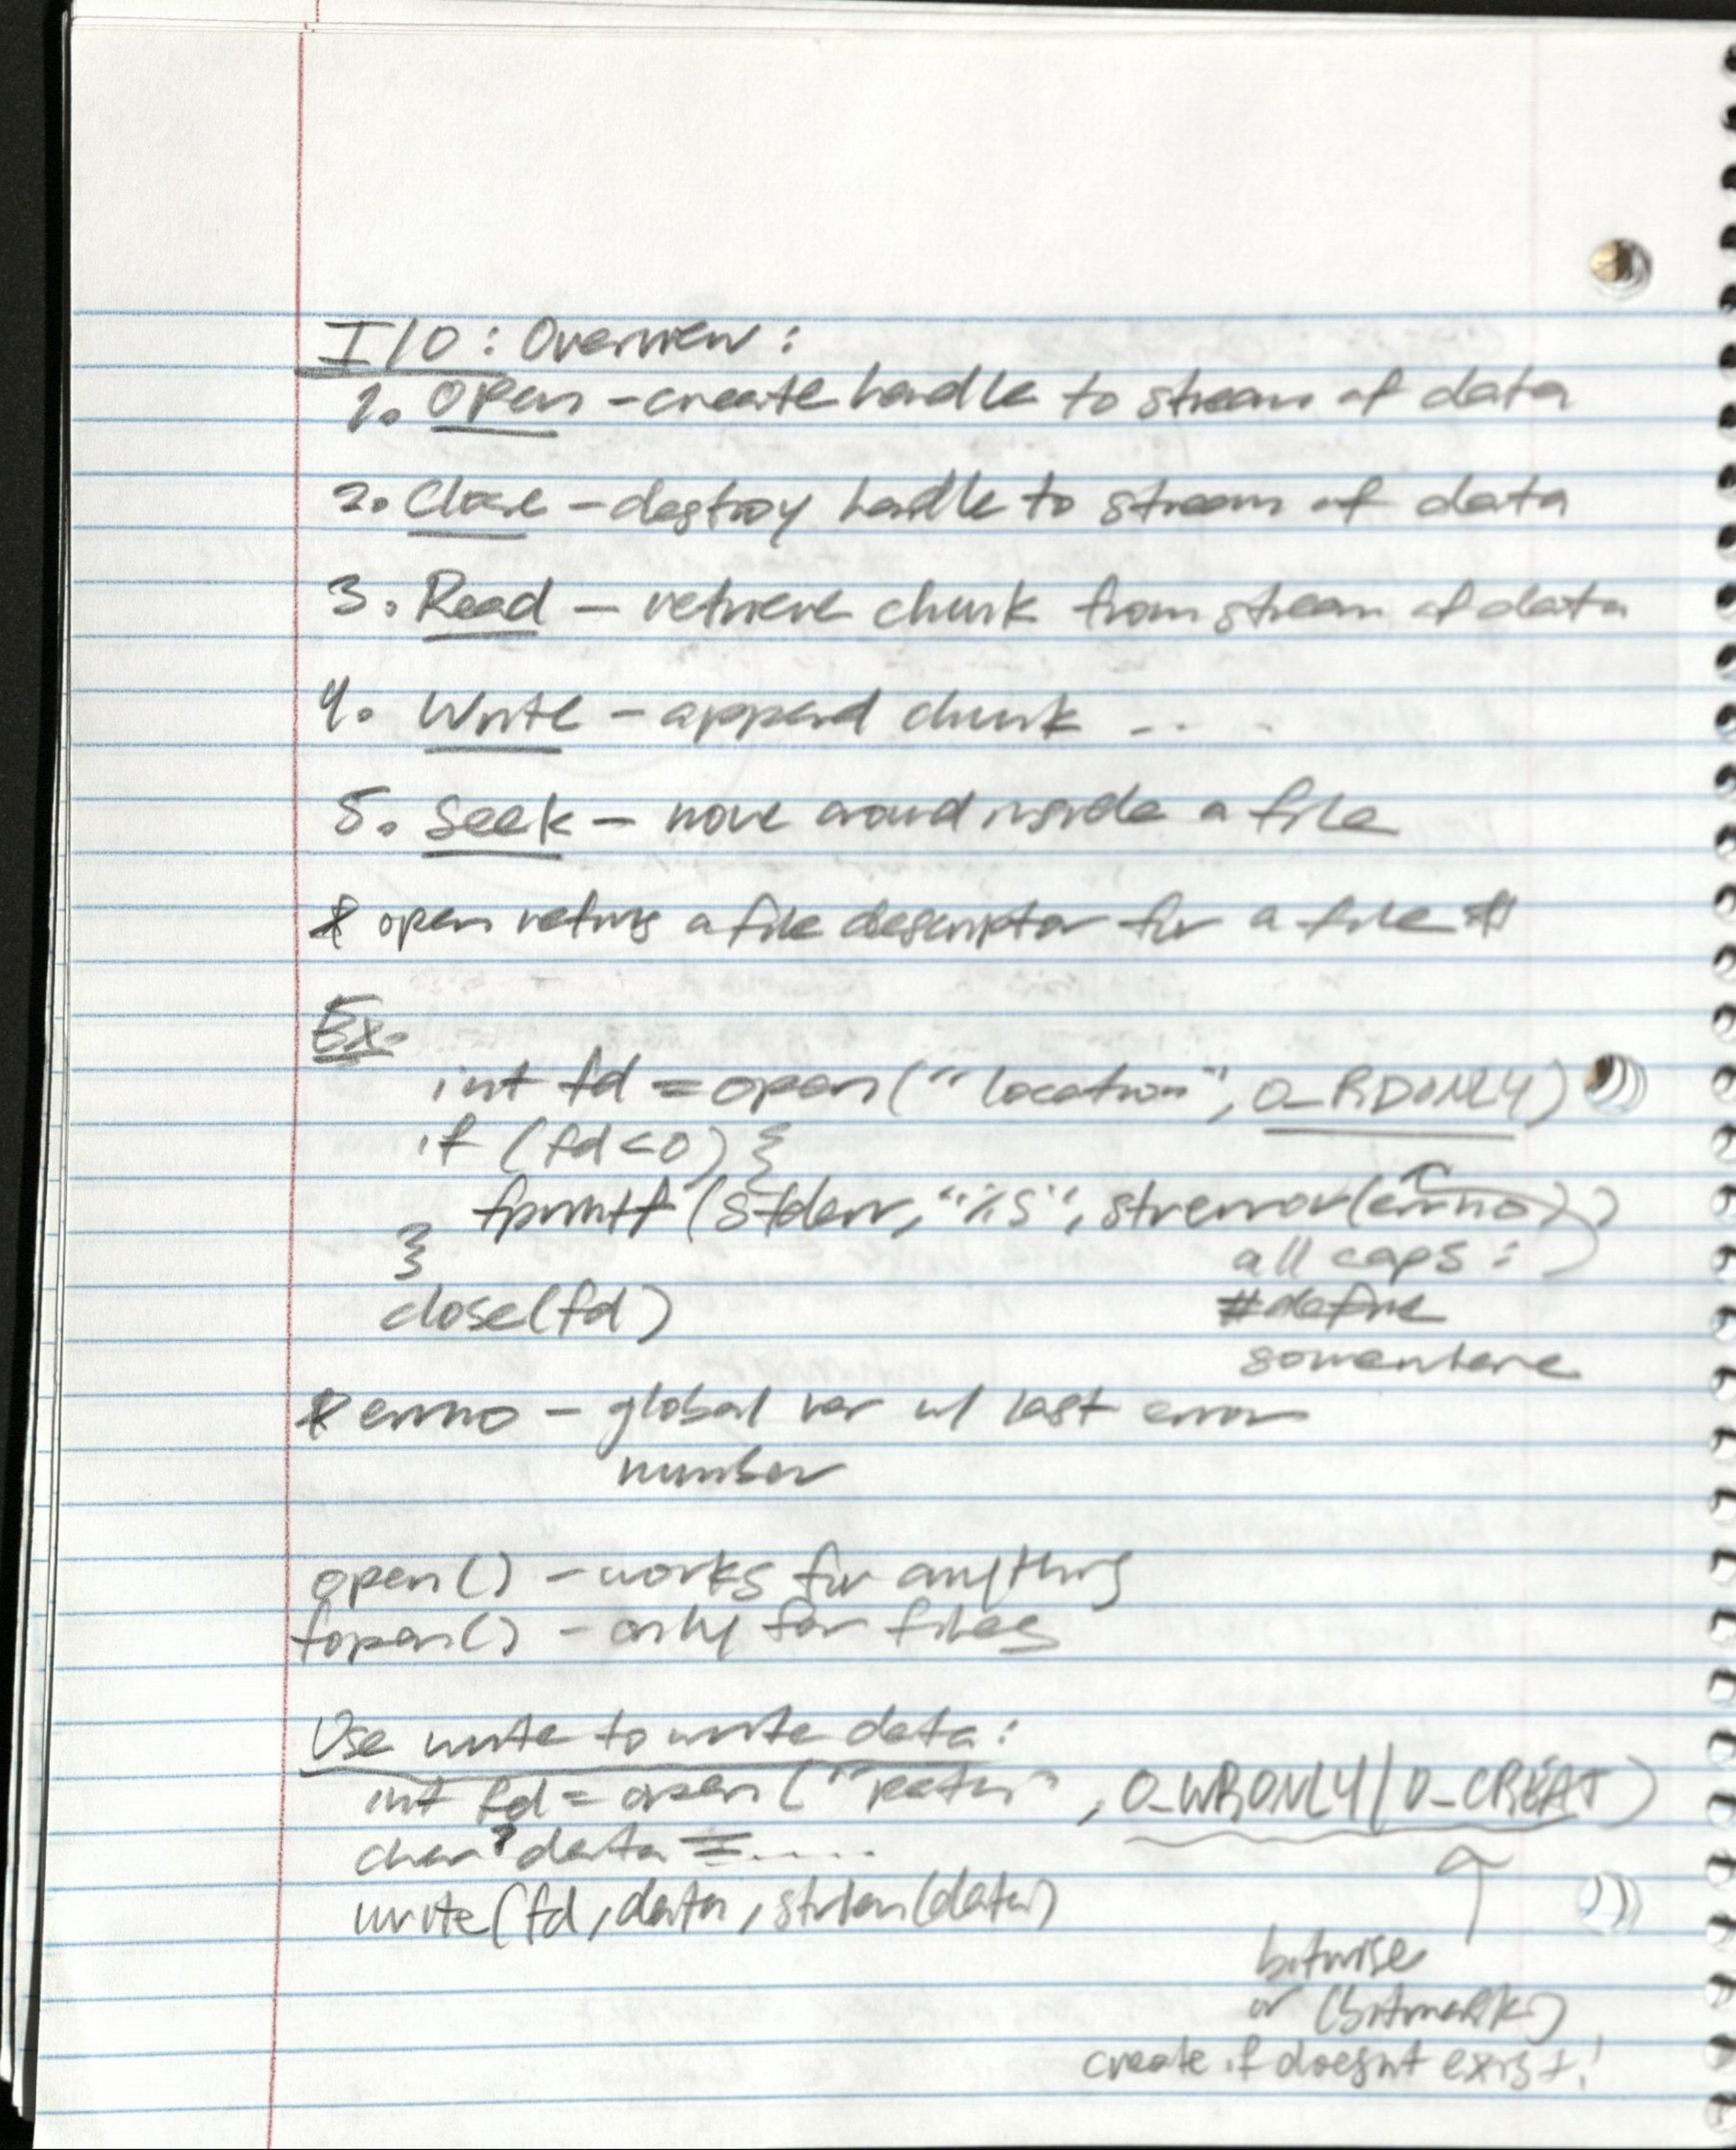 I/O: Overview:
1. Open - create handle to stream of data
2. Close - destroy handle to stream of data
3. Read - retrieve chunk from stream of data
4. Write - append chunk ...
5. Seek - move around inside a file
* open returns a file descriptor for a file *
Ex.
int fd = open("location", O_RDONLY)
if (fd<0) {
fprintf(stderr, "%s", strerror(errno))
}
all caps:
close(fd)
#define
somewhere
* errno - global var w/ last error
number
open() - works for anything
fopen() - only for files
Use write to write data:
int fd = open("path", O_WRONLY|O_CREAT)
char* data = .....
write(fd, data, strlen(data)
bitwise
or (bitmask)
create if doesnt exist!